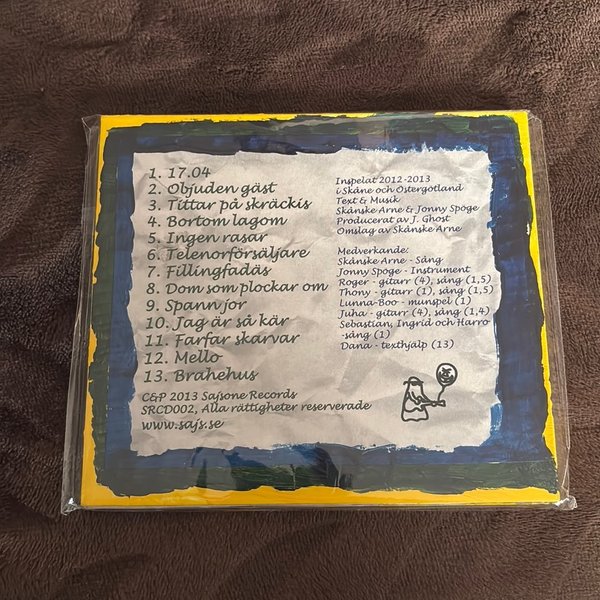 1. 17.04
2. Objuden gäst
3. Tittar på skräckis
4. Bortom lagom
5. Ingen rasar
6. Telenorförsäljare
7. Fillingfadäs
8. Dom som plockar om
9. Spann jor
10. Jag är så kär
11. Farfar skarvar
12. Mello
13. Brahehus
C&P 2013 Sajsone Records
SRCD002, Alla rättigheter reserverade
www.sajs.se
Inspelat 2012-2013
i Skåne och Östergötland
Text & Musik
Skånske Arne & Jonny Spöge
Producerat av J. Ghost
Omslag av Skånske Arne
Medverkande:
Skånske Arne - Sång
Jonny Spöge - Instrument
Roger - gitarr (4), sång (1,5)
Thony - gitarr (1), sång (1,5)
Lunna-Boo - munspel (1)
Juha - gitarr (4), sång (1,4)
Sebastian, Ingrid och Harro
-sång (1)
Dana - texthjälp (13)